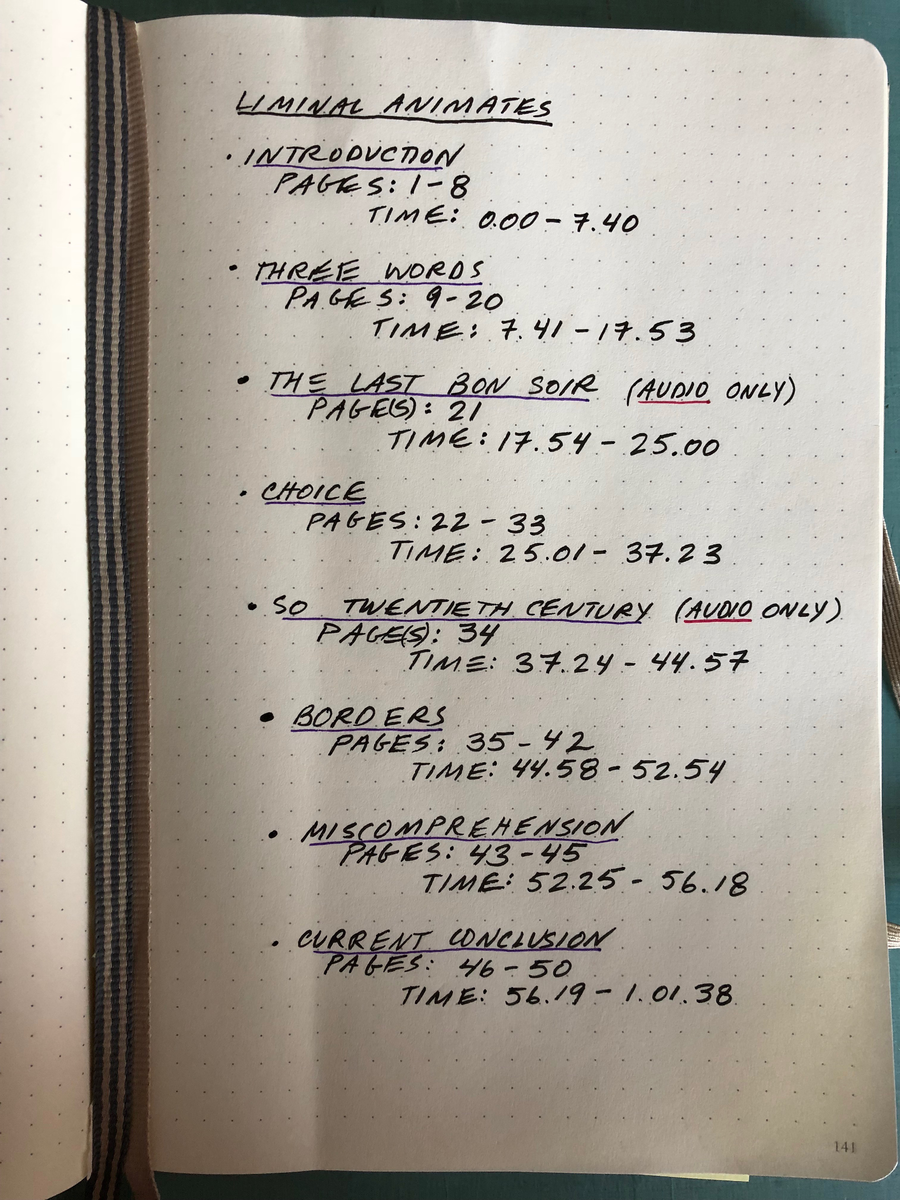 LIMINAL ANIMATES
• INTRODUCTION
PAGES: 1-8
TIME: 0.00 - 7.40
• THREE WORDS
PAGES: 9-20
TIME: 7.41 - 17.53
• THE LAST BON SOIR (AUDIO ONLY)
PAGE(S): 21
TIME: 17.54 - 25.00
• CHOICE
PAGES: 22 - 33
TIME: 25.01 - 37.23
• SO TWENTIETH CENTURY (AUDIO ONLY)
PAGE(S): 34
TIME: 37.24 - 44.57
• BORDERS
PAGES: 35 - 42
TIME: 44.58 - 52.54
• MISCOMPREHENSION
PAGES: 43 - 45
TIME: 52.25 - 56.18
• CURRENT CONCLUSION
PAGES: 46 - 50
TIME: 56.19 - 1.01.38
141